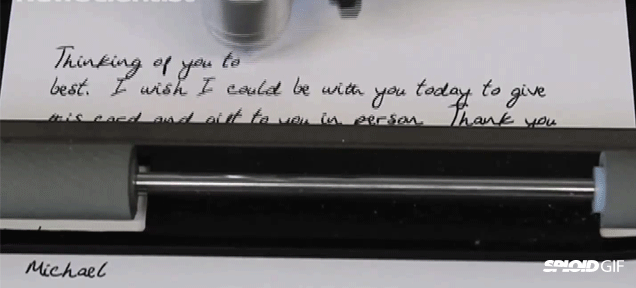 Thinking of you to
best. I wish I could be with you today to give
this card and gift to you in person Thank you
Michael
SPLOID GIF